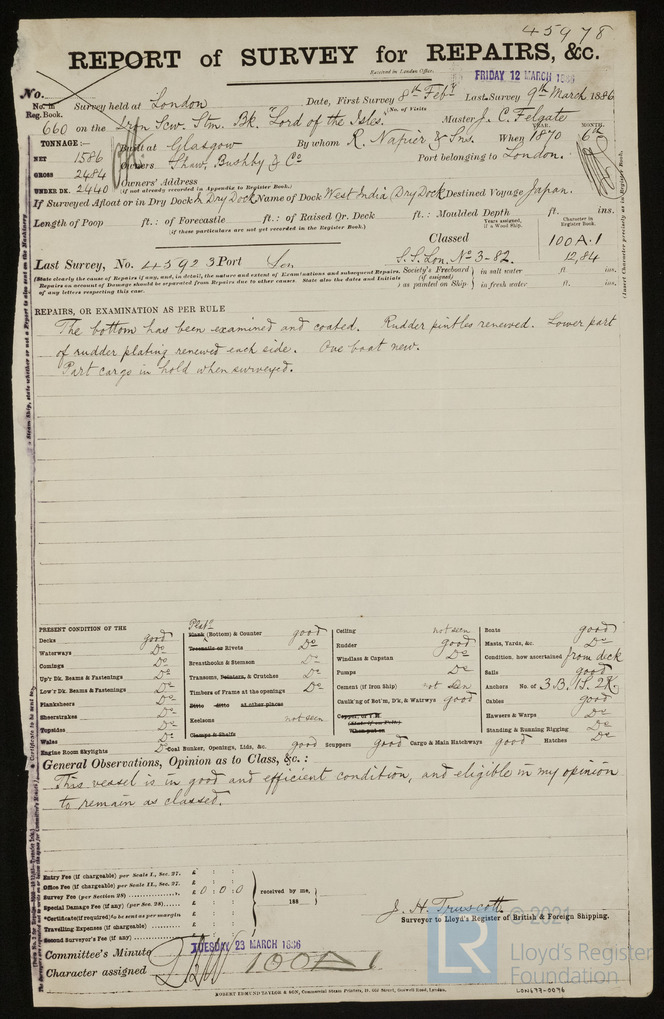 45978
REPORT of SURVEY for REPAIRS, &c.
Received in London Office, FRIDAY 12 MARCH 1886
No.
No. in Reg. Book. Survey held at London Date, First Survey 8th Feby Last Survey 9th March 1886
No. of Visits
660 on the Iron Scw. Stm. Bk. "Lord of the Isles." Master J. C. Felgate
TONNAGE:— Built at Glasgow By whom R. Napier & Sns. When 1870 6th
YEAR. MONTH.
NET 1586 Owners Shaw, Bushby & Co Port belonging to London.
GROSS 2484 Owners' Address
UNDER DK. 2440 (if not already recorded in Appendix to Register Book.)
If Surveyed Afloat or in Dry Dock In Dry Dock Name of Dock West India (Dry Dock) Destined Voyage Japan.
Length of Poop ft.: of Forecastle ft.: of Raised Qr. Deck ft.: Moulded Depth ft. ins.
(if these particulars are not yet recorded in the Register Book.)
Years assigned, if a Wood Ship. Character in Register Book.
Classed 100A.1
Last Survey, No. 45923 Port Lon S.S. Lon. No 3-82. 12,84
(State clearly the cause of Repairs if any, and, in detail, the nature and extent of Examinations and subsequent Repairs. Repairs on account of Damage should be separated from Repairs due to other causes. State also the dates and initials of any letters respecting this case.
Society's Freeboard (if assigned) as painted on Ship } in salt water ft. ins.
in fresh water ft. ins.
REPAIRS, OR EXAMINATION AS PER RULE
The bottom has been examined and coated. Rudder pintles renewed. Lower part
of rudder plating renewed each side. One boat new.
Part cargo in hold when surveyed.
PRESENT CONDITION OF THE
Decks good
Waterways Do
Comings Do
Up'r Dk. Beams & Fastenings Do
Low'r Dk. Beams & Fastenings Do
Planksheers Do
Sheerstrakes Do
Topsides Do
Wales Do
Engine Room Skylights Do
Plat'g
Plank (Bottom) & Counter good
Treenails or Rivets Do
Breasthooks & Stemson Do
Transoms, Pointers, & Crutches Do
Timbers of Frame at the openings Do
Ditto ditto at other places
Keelsons not seen
Clamps & Shelfs
Coal Bunker, Openings, Lids, &c. good
Ceiling not seen
Rudder good
Windlass & Capstan Do
Pumps Do
Cement (if Iron Ship) not seen
Caulk'ng of Bot'm, D'k, & Waterways good
Scuppers good Cargo & Main Hatchways good Hatches Do
Boats good
Masts, Yards, &c. Do
Condition, how ascertained from deck
Sails good
Anchors No. of 3.B. 1S. 2K.
Cables good
Hawsers & Warps Do
Standing & Running Rigging Do
General Observations, Opinion as to Class, &c.:
This vessel is in good and efficient condition, and eligible in my opinion
to remain as classed.
Entry Fee (if chargeable) per Scale I., Sec. 27. £ : :
Office Fee (if chargeable) per Scale II., Sec. 27. £ : :
Survey Fee (per Section 28) £ 0:0:0
Special Damage Fee (if any) (per Sec. 28) £ : :
*Certificate (if required) to be sent as per margin £
Travelling Expenses (if chargeable) £
Second Surveyor's Fee (if any) £
received by me,
188
J. H. Truscott
Surveyor to Lloyd's Register of British & Foreign Shipping.
Committee's Minute TUESDAY 23 MARCH 1886
Character assigned 100A1
ROBERT EDMUND TAYLOR & SON, Commercial Steam Printers, 19, Old Street, Goswell Road, London.
LON677-0076
© 2021
LR
Lloyd's Register
Foundation